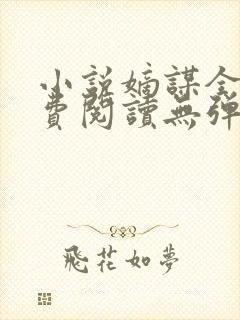 小說嫡謀全
費閱讀無彈
飛花如夢